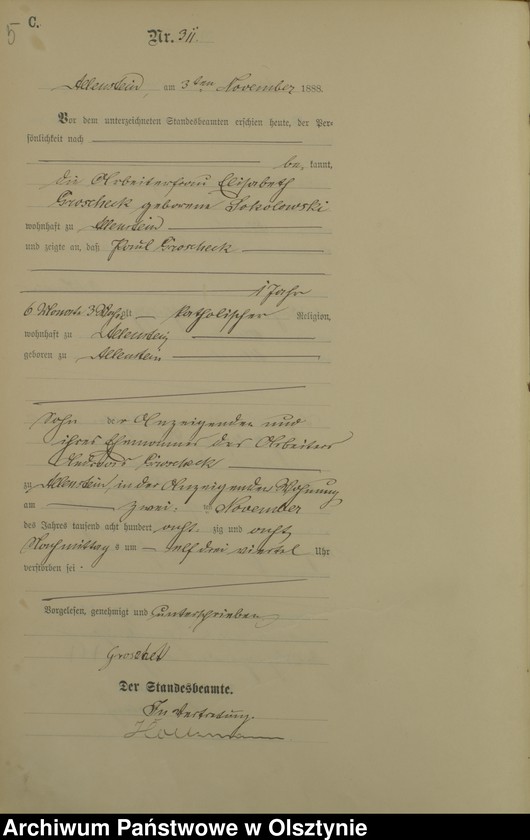 5
C.
Nr. 311.
Allenstein, am 3ten November 1888.
Vor dem unterzeichneten Standesbeamten erschien heute, der Per-
sönlichkeit nach
be kannt,
die Arbeiterfrau Elisabeth
Groscheck geborene Sokolowski
wohnhaft zu Allenstein
und zeigte an, daß Paul Groscheck
1 Jahr
6 Monate 3 Tage alt katholischer Religion,
wohnhaft zu Allenstein
geboren zu Allenstein
Sohn der Anzeigenden und
ihres Ehemannes des Arbeiters
Andreas Groscheck
zu Allenstein, in der Anzeigenden Wohnung
am zwei ten November
des Jahres tausend acht hundert acht zig und acht
Nachmittags um elf drei viertel Uhr
verstorben sei.
Vorgelesen, genehmigt und unterschrieben
Der Standesbeamte.
In Vertretung.
Archiwum Państwowe w Olsztynie